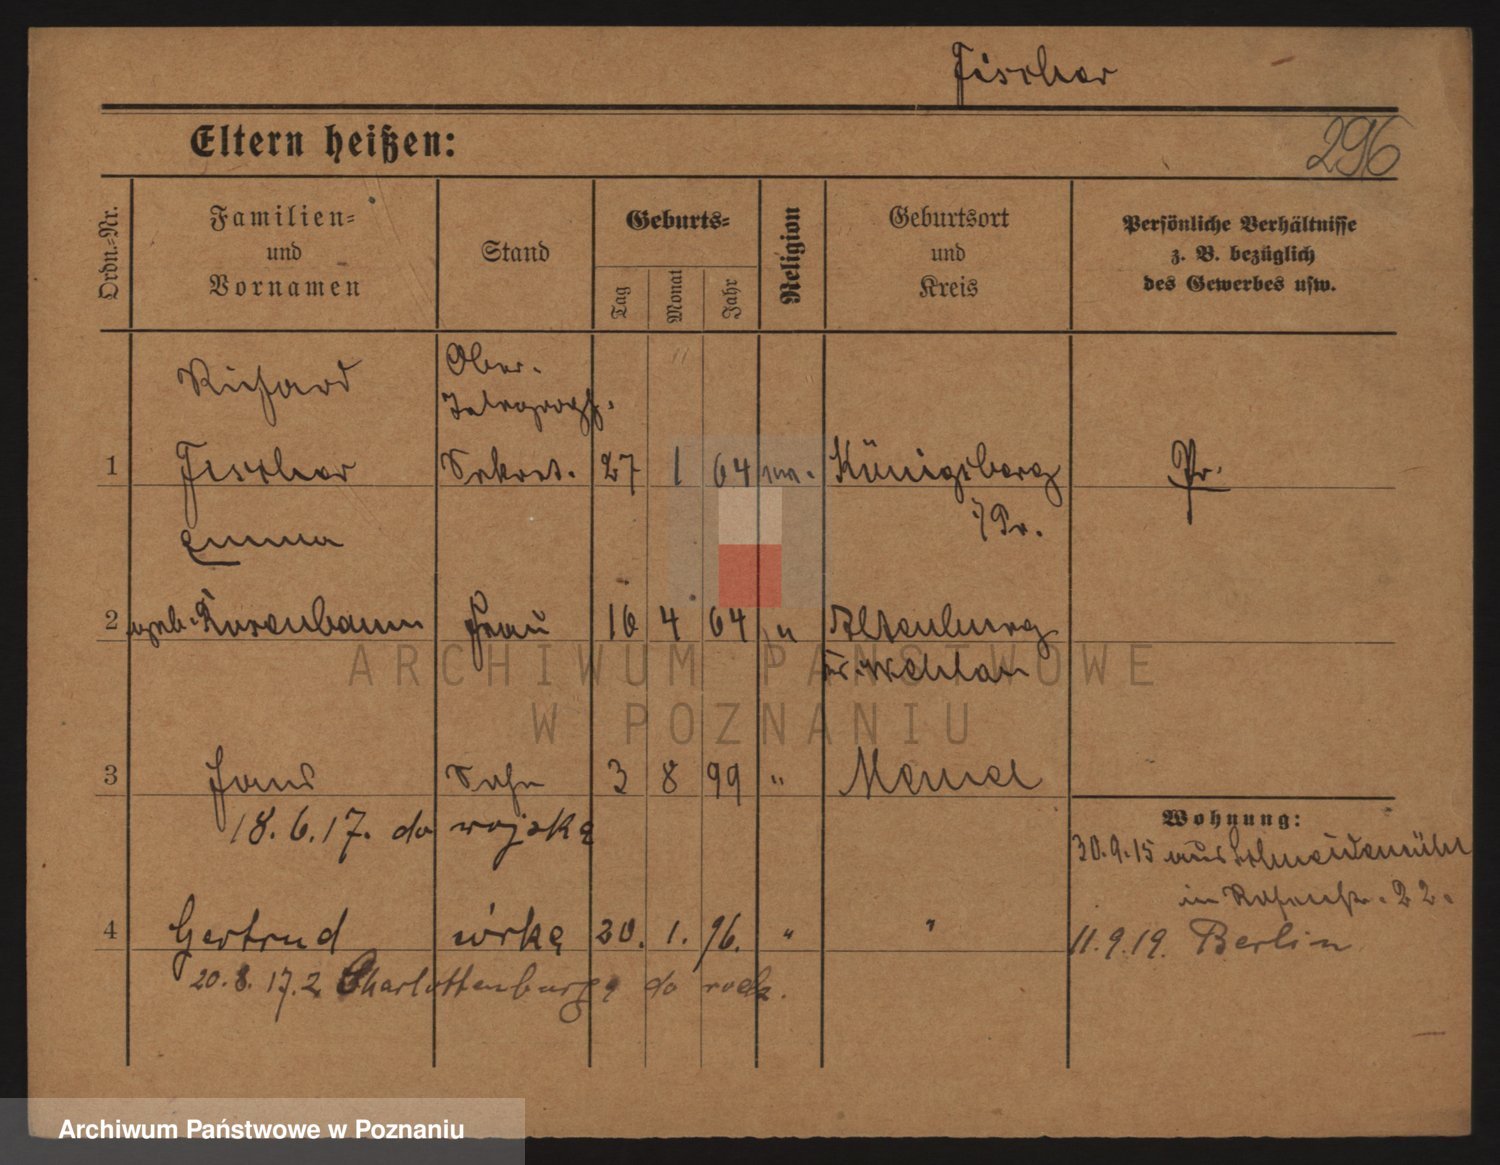 Fischer
296
Eltern heißen:
Ordn.=Nr.
Familien=
und
Vornamen
Stand
Geburts=
Tag
Monat
Jahr
Religion
Geburtsort
und
Kreis
Persönliche Verhältnisse
z. B. bezüglich
des Gewerbes usw.
Richard
Ober-
Telegraph.
1 Fischer Sekret. 27 1 64 Königsberg Pr.
i/Pr.
Emma
2 geb. Rosenbaum Frau 16 4 64 " Altenburg
Kr. Wehlau
3 Hans Sohn 3 8 99 " Memel
18.6.17. do wojska
Wohnung:
30.9.15 aus Schneidemühl
im 22.
4 Gertrud córka 20. 1. 96. " "
11.9.19. Berlin
20.8.17. z Charlottenburga do rodz.
ARCHIWUM PAŃSTWOWE
W POZNANIU
Archiwum Państwowe w Poznaniu